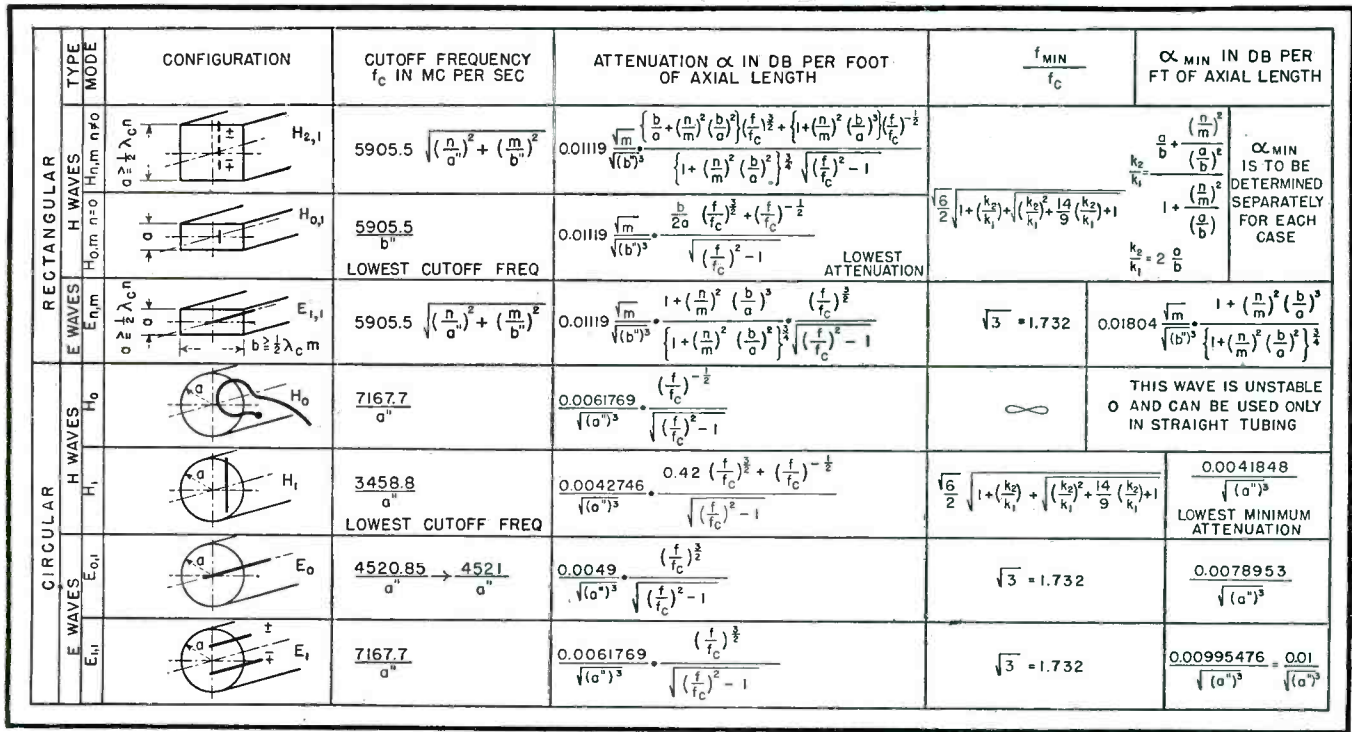 TYPE
MODE
CONFIGURATION
CUTOFF FREQUENCY
f_C IN MC PER SEC
ATTENUATION α IN DB PER FOOT
OF AXIAL LENGTH
f_MIN / f_C
α_MIN IN DB PER
FT OF AXIAL LENGTH
RECTANGULAR
H WAVES
H_n,m n≠0
a ≧ ½ λ_C n
±
∓
H_2,1
5905.5 √((n/a")² + (m/b")²)
0.01119 √m/√(b")³ • {b/a + (n/m)² (b/a)²}(f/f_C)^3/2 + {1 + (n/m)² (b/a)³}(f/f_C)^-1/2 / {1 + (n/m)² (b/a)²}^3/4 √((f/f_C)² - 1)
√6/2 √(1 + (k₂/k₁) + √((k₂/k₁)² + 14/9 (k₂/k₁) + 1))
k₂/k₁ = (a/b + (n/m)²/(a/b)²) / (1 + (n/m)²/(a/b))
α_MIN
IS TO BE
DETERMINED
SEPARATELY
FOR EACH
CASE
H_0,m n=0
a
H_0,1
5905.5 / b"
LOWEST CUTOFF FREQ
0.01119 √m/√(b")³ • b/2a (f/f_C)^3/2 + (f/f_C)^-1/2 / √((f/f_C)² - 1)
LOWEST
ATTENUATION
k₂/k₁ = 2 a/b
E WAVES
E_n,m
a ≧ ½ λ_C n
a
E_1,1
b ≧ ½ λ_C m
5905.5 √((n/a")² + (m/b")²)
0.01119 √m/√(b")³ • 1 + (n/m)² (b/a)³ / {1 + (n/m)² (b/a)²}^3/4 • (f/f_C)^3/2 / √((f/f_C)² - 1)
√3 = 1.732
0.01804 √m/√(b")³ • 1 + (n/m)² (b/a)³ / {1 + (n/m)² (b/a)²}^3/4
CIRCULAR
H WAVES
H_0
a
H_0
7167.7 / a"
0.0061769 / √(a")³ • (f/f_C)^-1/2 / √((f/f_C)² - 1)
∞
0
THIS WAVE IS UNSTABLE
AND CAN BE USED ONLY
IN STRAIGHT TUBING
H_1
a
H_1
3458.8 / a"
LOWEST CUTOFF FREQ
0.0042746 / √(a")³ • 0.42 (f/f_C)^3/2 + (f/f_C)^-1/2 / √((f/f_C)² - 1)
√6/2 √(1 + (k₂/k₁) + √((k₂/k₁)² + 14/9 (k₂/k₁) + 1))
0.0041848 / √(a")³
LOWEST MINIMUM
ATTENUATION
E WAVES
E_0,1
a
E_0
4520.85 / a" → 4521 / a"
0.0049 / √(a")³ • (f/f_C)^3/2 / √((f/f_C)² - 1)
√3 = 1.732
0.0078953 / √(a")³
E_1,1
a
±
∓
E_1
7167.7 / a"
0.0061769 / √(a")³ • (f/f_C)^3/2 / √((f/f_C)² - 1)
√3 = 1.732
0.00995476 / √(a")³ = 0.01 / √(a")³